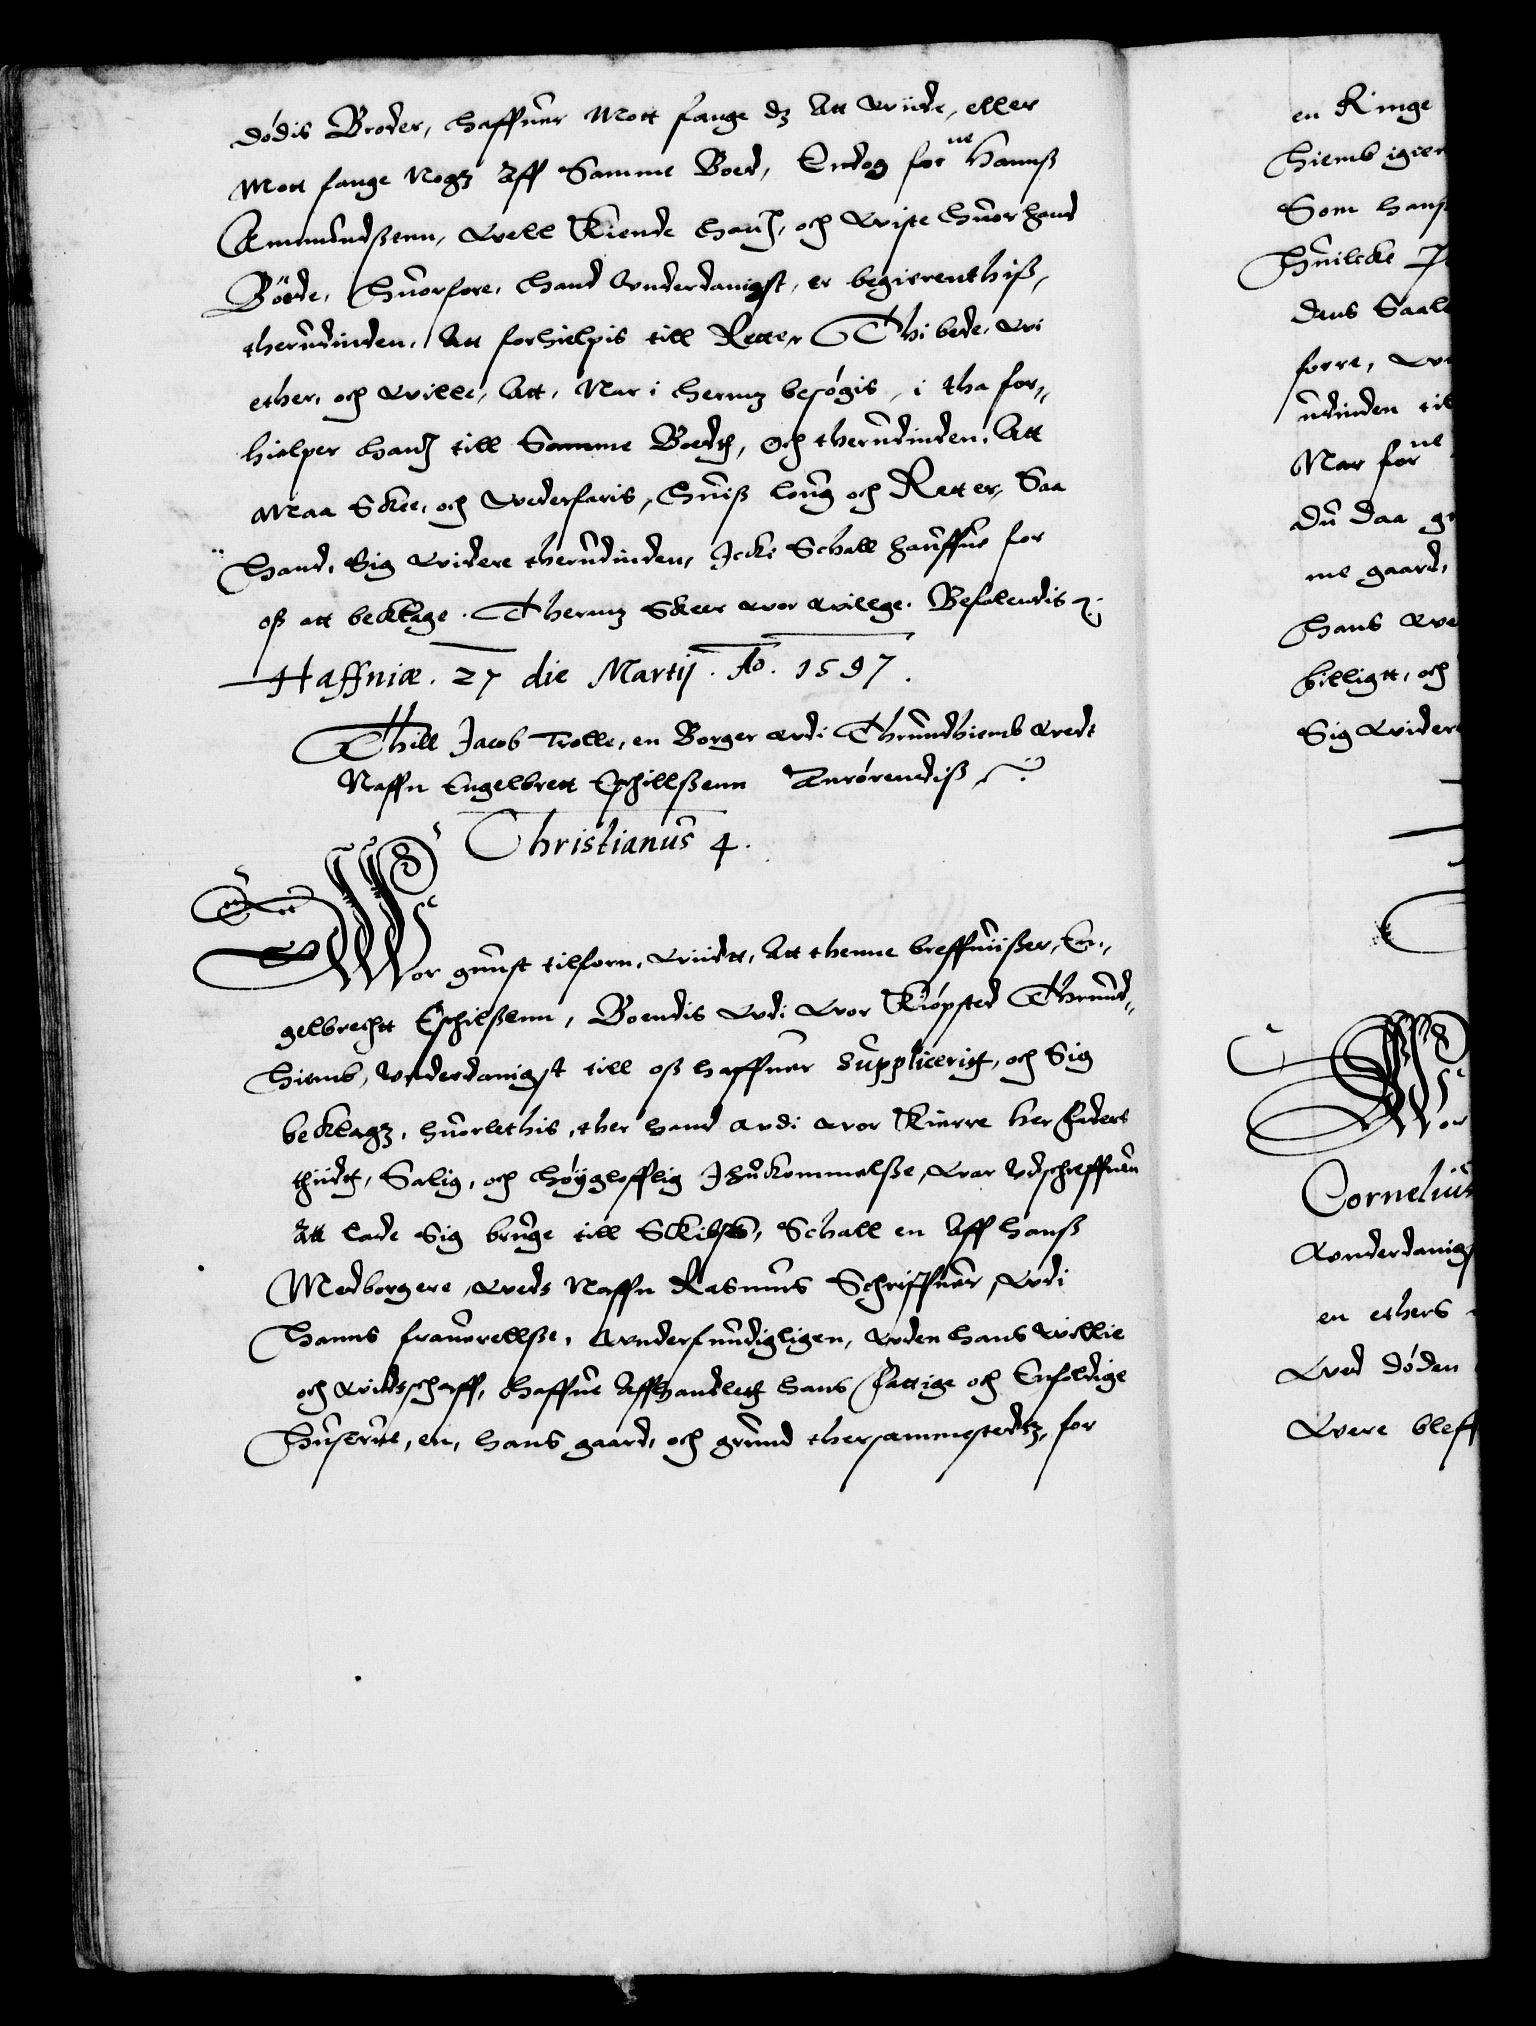 dödis Broder, haffuer Mott fange dz Att vide, eller
Mott fange Nogz Aff Samme Boed, Endog for ne Hanß
Ammundßenn, well Kiende hanß, och viste huor hand
Boede, Huorfore, hand Vnderdanigst, er begierenthiß,
therudinden, Att forhielpis till Rette, Thi bede, wi
ether, och wille, Att, Nar i hermz besögis, i tha for„
hielper hanß till Samme Boedtz, och therudinden, Att
Maa Skee, och wederfaris, huiß loug och Rett er, Saa
Hand, Sig videre therudinden, Icke Schall hauffue for
oß att becklage. Thermz Skeer wor willge. Befalendis
Haffniæ. 27 die Martij. Ao. 1597.
Thill Jacob Trolle, en Borger vdi Thrundhiemb vedt
Naffn Engelbrett Eschillßenn Anrörendiß
Christianus 4.
Wor gunst tilforn, viidt, Att thenne breffuißer, En„
gelbrecht Eschilßenn, Boendis vdi vor Kiöpsted Thrund„
hiemb, Vnderdanigst till oß haffuer Suppliceritt, och Sig
becklagz, huorlethis, ther hand vdi vor Kierre her faders
thiidtz, Salig, och höyglofflig Ihukommelße, war Vdschreffuen
Att lade Sig bruge till Skibß, Schall en Aff hanß
Medborgere, veds Naffn Rasmus Schriffuer, vdi
Hanns frauerellße, Vnderfundigligen, vden hans willie
och vidtschaff, haffue Affhandlett hans fattige och Enfoldige
Husfrue, en, hans gaard, och grund thersammestedtz, for
en Ringe
Hiemb igien
Som hans
Huilcke
dens Saal
forre,
udinden til
Nar for ne
du daa
me gaard,
hans
billigtt, och
Sig videre
Wor
Cornelius
Vnderdanigs
en ethers
ved döden
Were bleff